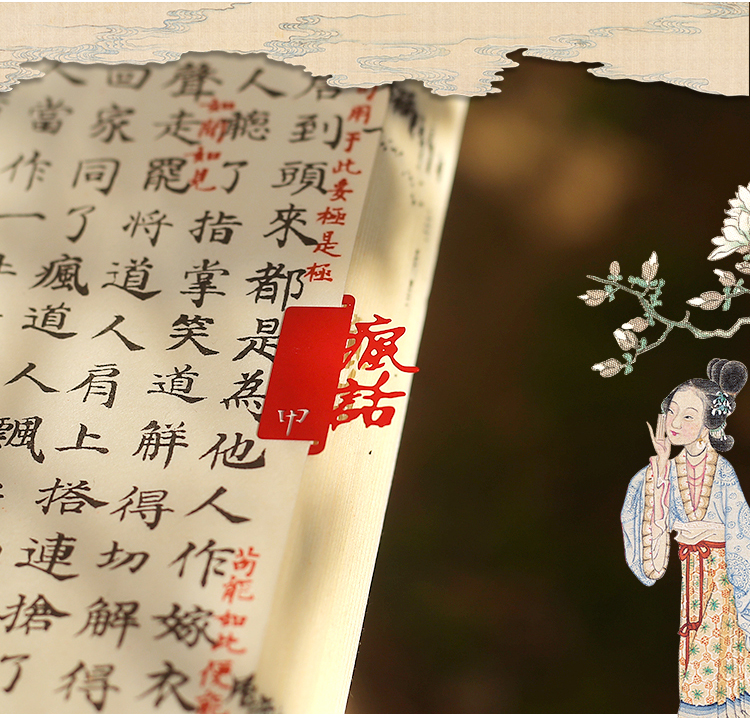 可用于此妥極是極
到頭來都是為他人作嫁衣
苟能如此便
人聽了指掌笑道解得切解得
如聞如見
聲走罷將道人肩上搭連搶了
回家同了瘋道人飄
人當作一
瘋話
甲